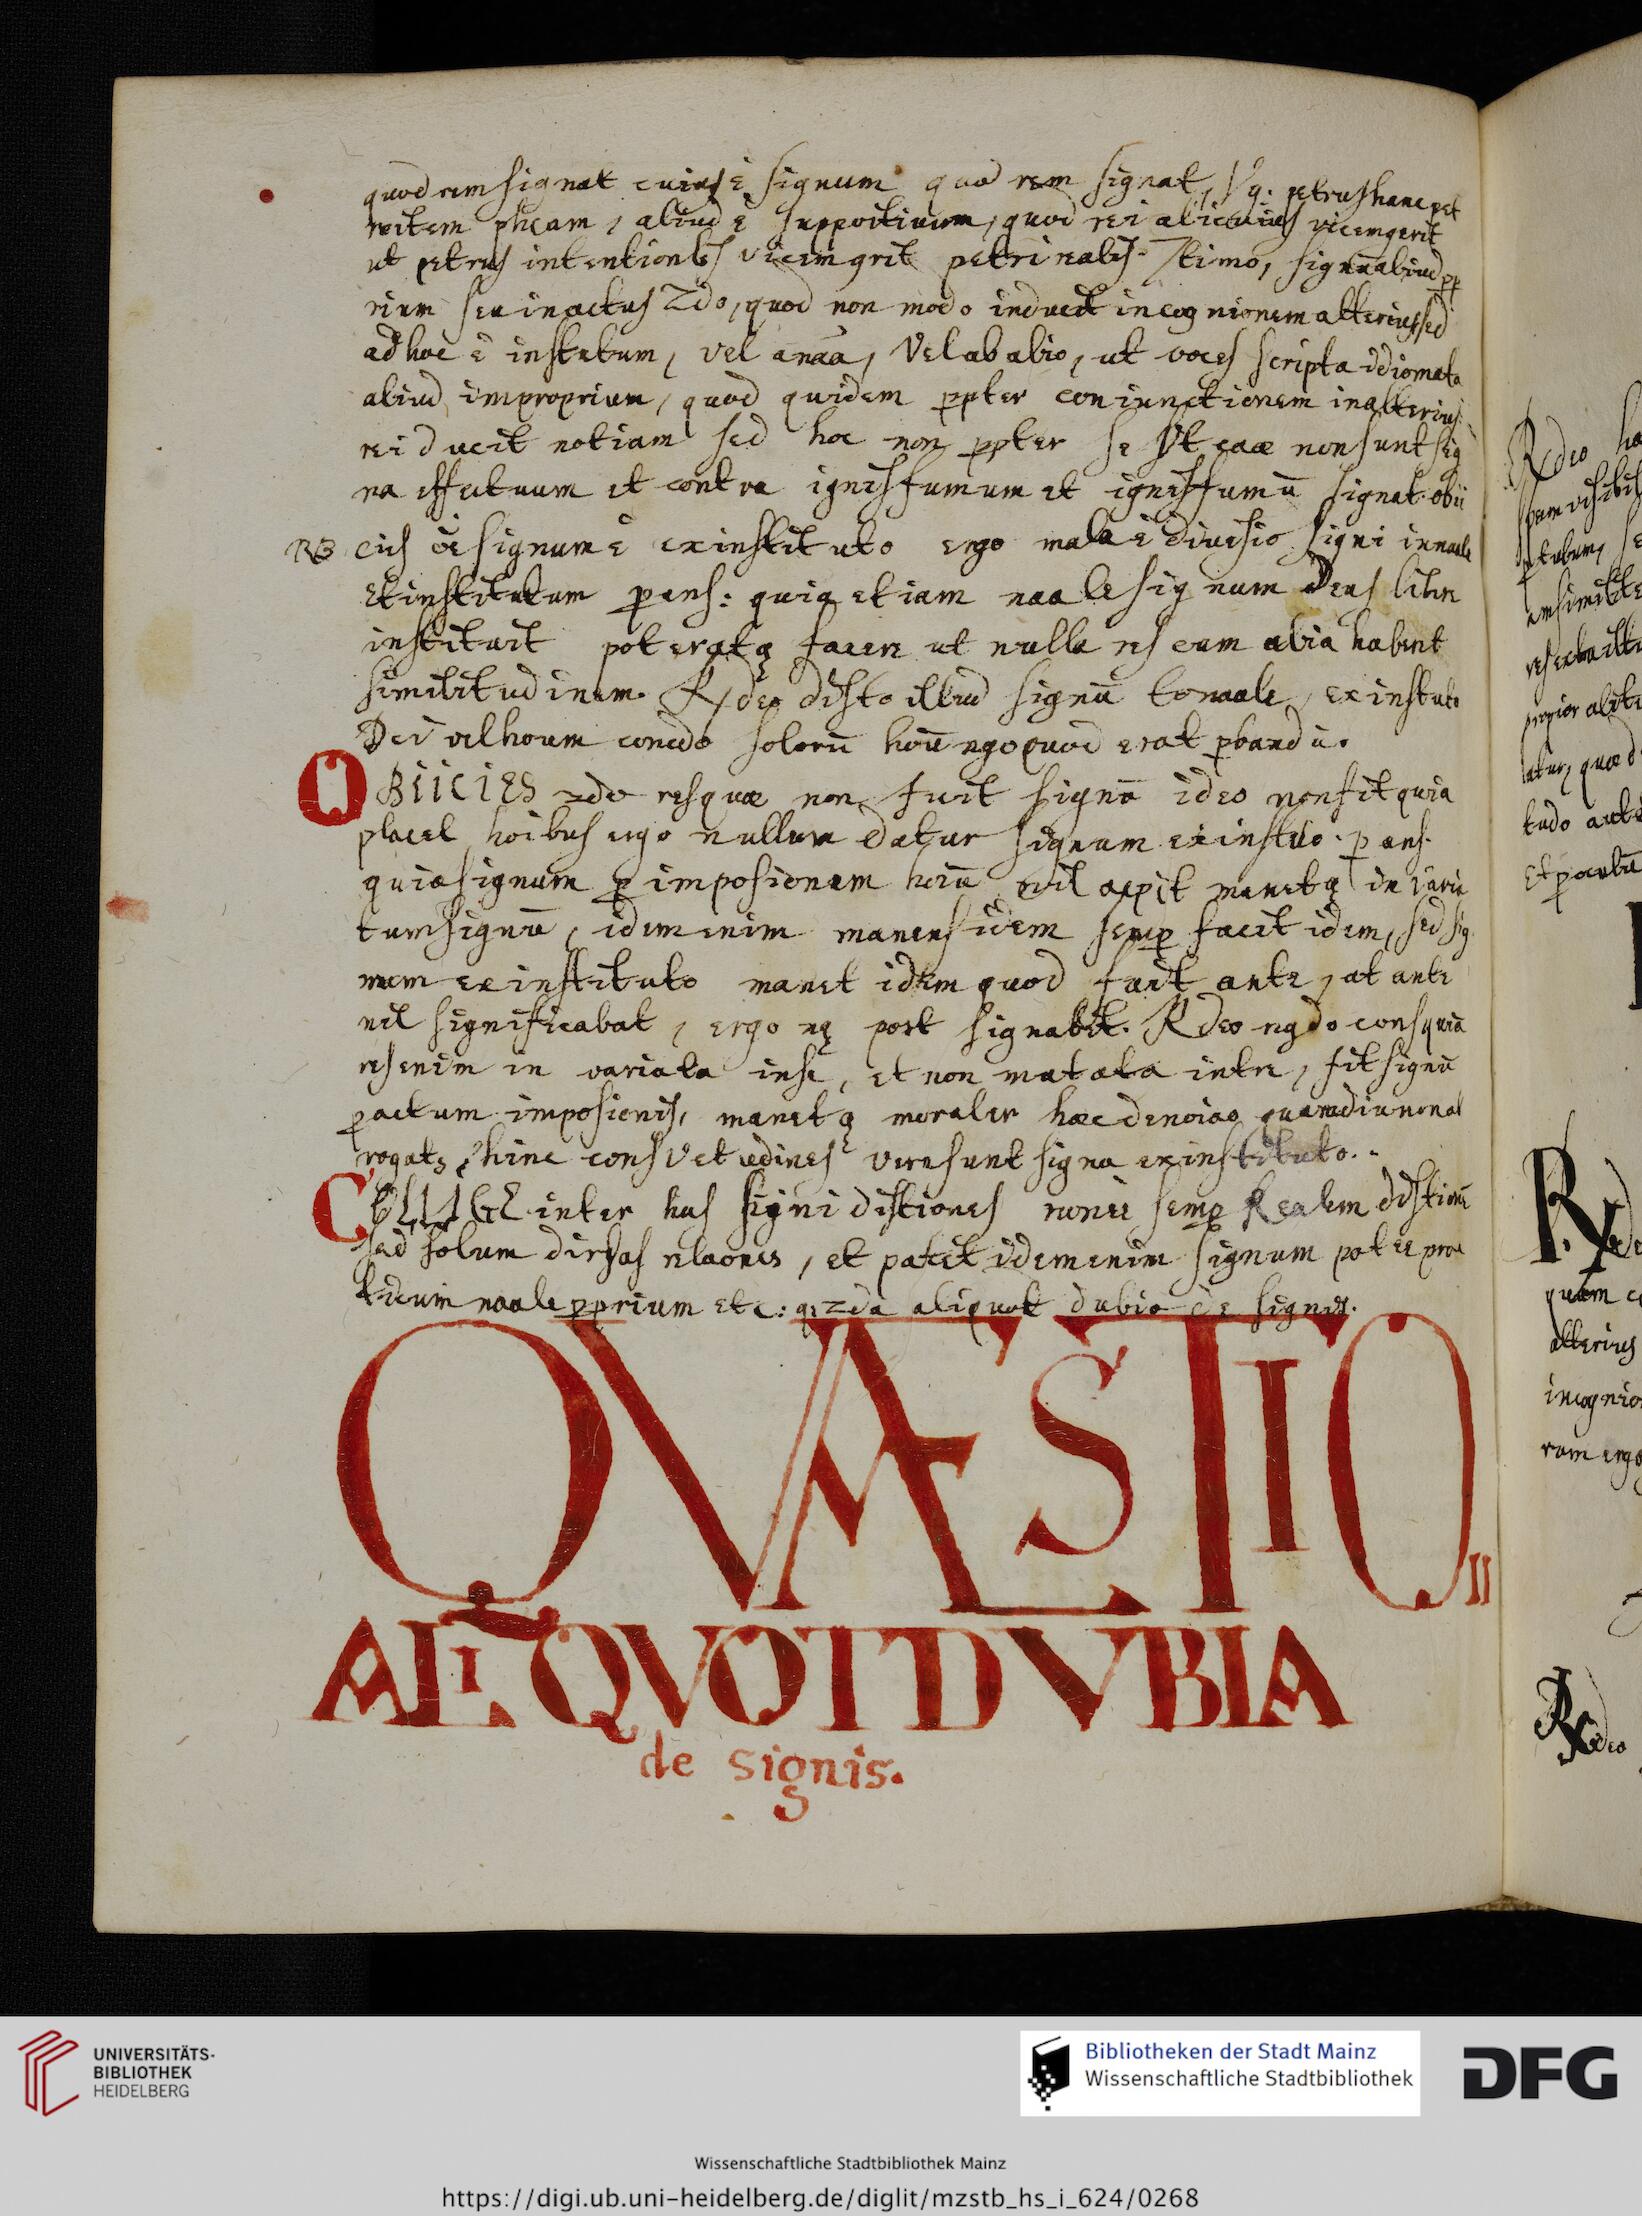 quod rem signat cuius ē signum quod rem signat, Vg. petrus hanc pet
ritem phcam, aliud ē suppositiuum, quod rei alicuius vicem gerit
ut petrus intentionlis vicem grit petri realis. 7timo, signū aliud pp
rium seu in actus 2do, quod non modo inducit in cognionem alterius, sed
ad hoc ē institutum, vel a naa, vel ab alio, ut voces scripta idiomata
aliud improprium, quod quidem ppter coniunctionem in alterius
rei ducit notiam sed hoc non ppter se Vt caæ non sunt sig
na effectuum et contra ignis fumum et ignis fumū signat. obii
cies oē signum ē ex instituto ergo mala ē diuisio signi in naale
et institutum p ans: quia etiam naale signum Deus libre
instituit poteratq facere ut nulla res cum alia haberet
similitudinem. Rdeo disto illud signū to naale, ex instuto
Dei vel houm concdo solorū hoū ngo quod erat pbandū.
OBIICIES 2do res quæ non fuit signū ideo non fit quia
placet hoibus ergo nullum datur signum ex instuo. p ans.
quia signum p imposionem hoiū nil accpit manetq in varia
tum signū, idem enim manens idem semp facit idem, sed sig
num ex instituto manet idem quod fuit ante, at ante
nil significabat, ergo nq post signabit. Rdeo ngdo cons quia
res enim in variata in se, et non mutata intre, fit signū
p actum imposionis, manetq moraler hæc denoiao quamdiu non ab
rogat, hinc consvetudines vere sunt signa ex instituto.
COLLIGE inter has signi distiones non ee semp Realem distionē
sed solum diersas relaones, et patet idem enim signum pot ee prac
ticum naale pprium etc: qs 2da aliquot dubia de signis.
QVÆSTIO II
ALIQVOT DVBIA
de signis.
UNIVERSITÄTS-
BIBLIOTHEK
HEIDELBERG
Bibliotheken der Stadt Mainz
Wissenschaftliche Stadtbibliothek
DFG
Wissenschaftliche Stadtbibliothek Mainz
https://digi.ub.uni-heidelberg.de/diglit/mzstb_hs_i_624/0268